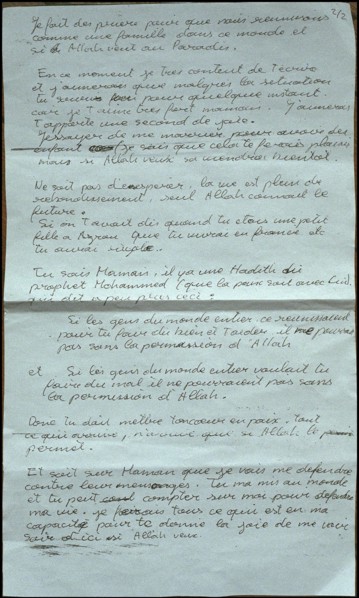 2/2
Je fait des prières pour que nous reunissons
comme une famille dans ce monde et
si Allah veut au Paradis.
En ce moment je tres content de t'écrire
et j'aimerais que malgrés la situation
tu pour quelque instant
car je t'aime tres fort maman. J'aimerais
t'apporté une second de joie.
J'essayer de me marrier pour avoirs des
enfant je sais que cela te ferais plaisir
mais si Allah veux sa viendras bientôt.
Ne sait pas disesperer, la vie est plein de
rebondissement, seul Allah connait le
future.
Si on t'avait dis quand tu etais une petit
fille a que tu vivras en france etc
tu aurai
Tu sais Maman, il y a une Hadith du
prophet Mohammed (que la paix soit avec Lui)
qui dit a peu plus ceci :
Si les gens du monde entier ce reunissaient
pour tu faire du bien et t'aider, il ne pourrais
pas sans la permission d'Allah
et Si les gens du monde entier voulait tu
faire du mal, il ne pourraient pas sans
la permission d'Allah.
Donc tu doit mettre ton coeur en paix, tout
ce qui arrive, n'arrive que si Allah le
permet.
Et soit sur Maman que je vais me defendre
contre leur mensonges. Tu ma mis au monde
et tu peut compter sur moi pour defendre
ma vie. Je ferais tous ce qui est en ma
capacité pour te donne la joie de me voir
sur d'ici si Allah veux.